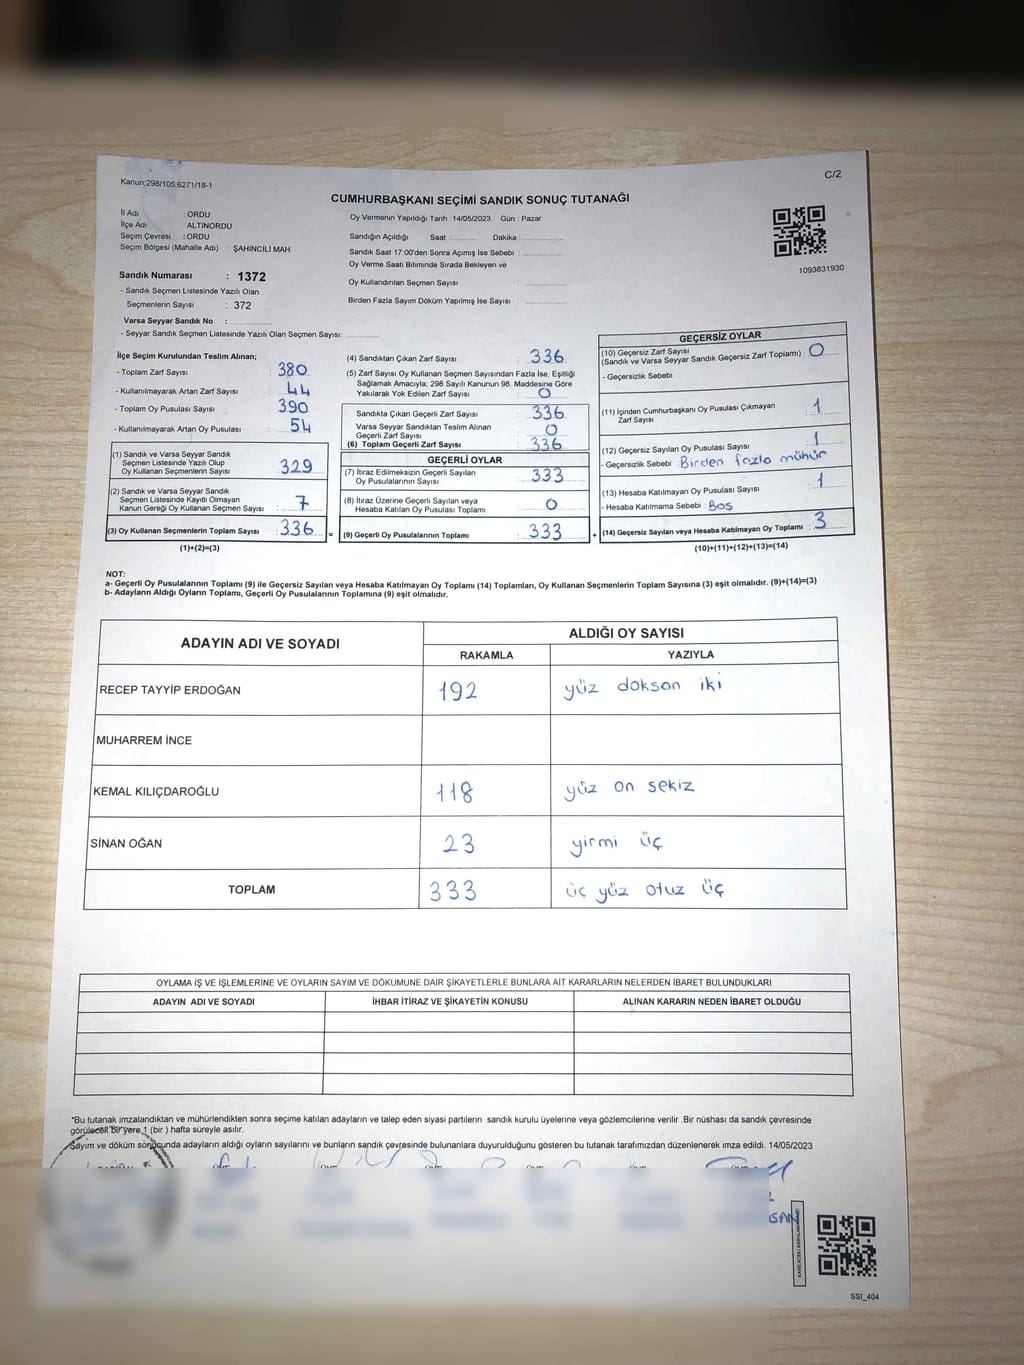 Kanun;298/105,6271/18-1
C/2
CUMHURBAŞKANI SEÇİMİ SANDIK SONUÇ TUTANAĞI
İl Adı : ORDU
İlçe Adı : ALTINORDU
Seçim Çevresi : ORDU
Seçim Bölgesi (Mahalle Adı) : ŞAHİNCİLİ MAH.
Sandık Numarası : 1372
- Sandık Seçmen Listesinde Yazılı Olan
Seçmenlerin Sayısı : 372
Varsa Seyyar Sandık No :
- Seyyar Sandık Seçmen Listesinde Yazılı Olan Seçmen Sayısı:
Oy Vermenin Yapıldığı Tarih : 14/05/2023 Gün : Pazar
Sandığın Açıldığı Saat : Dakika :
Sandık Saat 17:00'den Sonra Açımış İse Sebebi :
Oy Verme Saati Bitiminde Sırada Bekleyen ve
Oy Kullandırılan Seçmen Sayısı :
Birden Fazla Sayım Döküm Yapılmış İse Sayısı :
1093831930
İlçe Seçim Kurulundan Teslim Alınan;
- Toplam Zarf Sayısı : 380
- Kullanılmayarak Artan Zarf Sayısı : 44
- Toplam Oy Pusulası Sayısı : 390
- Kullanılmayarak Artan Oy Pusulası : 54
(1) Sandık ve Varsa Seyyar Sandık
Seçmen Listesinde Yazılı Olup
Oy Kullanan Seçmenlerin Sayısı : 329
(2) Sandık ve Varsa Seyyar Sandık
Seçmen Listesinde Kayıtlı Olmayan
Kanun Gereği Oy Kullanan Seçmen Sayısı : 7
(3) Oy Kullanan Seçmenlerin Toplam Sayısı : 336 =
(1)+(2)=(3)
(4) Sandıktan Çıkan Zarf Sayısı : 336
(5) Zarf Sayısı Oy Kullanan Seçmen Sayısından Fazla İse, Eşitliği
Sağlamak Amacıyla; 298 Sayılı Kanunun 98. Maddesine Göre
Yakılarak Yok Edilen Zarf Sayısı : 0
Sandıkta Çıkan Geçerli Zarf Sayısı : 336
Varsa Seyyar Sandıktan Teslim Alınan
Geçerli Zarf Sayısı : 0
(6) Toplam Geçerli Zarf Sayısı : 336
GEÇERLİ OYLAR
(7) İtiraz Edilmeksizin Geçerli Sayılan
Oy Pusulalarının Sayısı : 333
(8) İtiraz Üzerine Geçerli Sayılan veya
Hesaba Katılan Oy Pusulası Toplamı : 0
(9) Geçerli Oy Pusulalarının Toplamı : 333 +
GEÇERSİZ OYLAR
(10) Geçersiz Zarf Sayısı
(Sandık ve Varsa Seyyar Sandık Geçersiz Zarf Toplamı) : 0
- Geçersizlik Sebebi :
(11) İçinden Cumhurbaşkanı Oy Pusulası Çıkmayan
Zarf Sayısı : 1
(12) Geçersiz Sayılan Oy Pusulası Sayısı : 1
- Geçersizlik Sebebi : Birden fazla mühür
(13) Hesaba Katılmayan Oy Pusulası Sayısı : 1
- Hesaba Katılmama Sebebi : Boş
(14) Geçersiz Sayılan veya Hesaba Katılmayan Oy Toplamı : 3
(10)+(11)+(12)+(13)=(14)
NOT:
a- Geçerli Oy Pusulalarının Toplamı (9) ile Geçersiz Sayılan veya Hesaba Katılmayan Oy Toplamı (14) Toplamları, Oy Kullanan Seçmenlerin Toplam Sayısına (3) eşit olmalıdır. (9)+(14)=(3)
b- Adayların Aldığı Oyların Toplamı, Geçerli Oy Pusulalarının Toplamına (9) eşit olmalıdır.
ADAYIN ADI VE SOYADI
ALDIĞI OY SAYISI
RAKAMLA YAZIYLA
RECEP TAYYİP ERDOĞAN 192 yüz doksan iki
MUHARREM İNCE
KEMAL KILIÇDAROĞLU 118 yüz on sekiz
SİNAN OĞAN 23 yirmi üç
TOPLAM 333 üç yüz otuz üç
OYLAMA İŞ VE İŞLEMLERİNE VE OYLARIN SAYIM VE DÖKÜMÜNE DAİR ŞİKAYETLERLE BUNLARA AİT KARARLARIN NELERDEN İBARET BULUNDUKLARI
ADAYIN ADI VE SOYADI İHBAR İTİRAZ VE ŞİKAYETİN KONUSU ALINAN KARARIN NEDEN İBARET OLDUĞU
*Bu tutanak imzalandıktan ve mühürlendikten sonra seçime katılan adayların ve talep eden siyasi partilerin sandık kurulu üyelerine veya gözlemcilerine verilir .Bir nüshası da sandık çevresinde
görülecek bir yere 1 (bir ) hafta süreyle asılır.
Sayım ve döküm sonucunda adayların aldığı oyların sayılarını ve bunların sandık çevresinde bulunanlara duyurulduğunu gösteren bu tutanak tarafımızdan düzenlenerek imza edildi. 14/05/2023
SSI_404